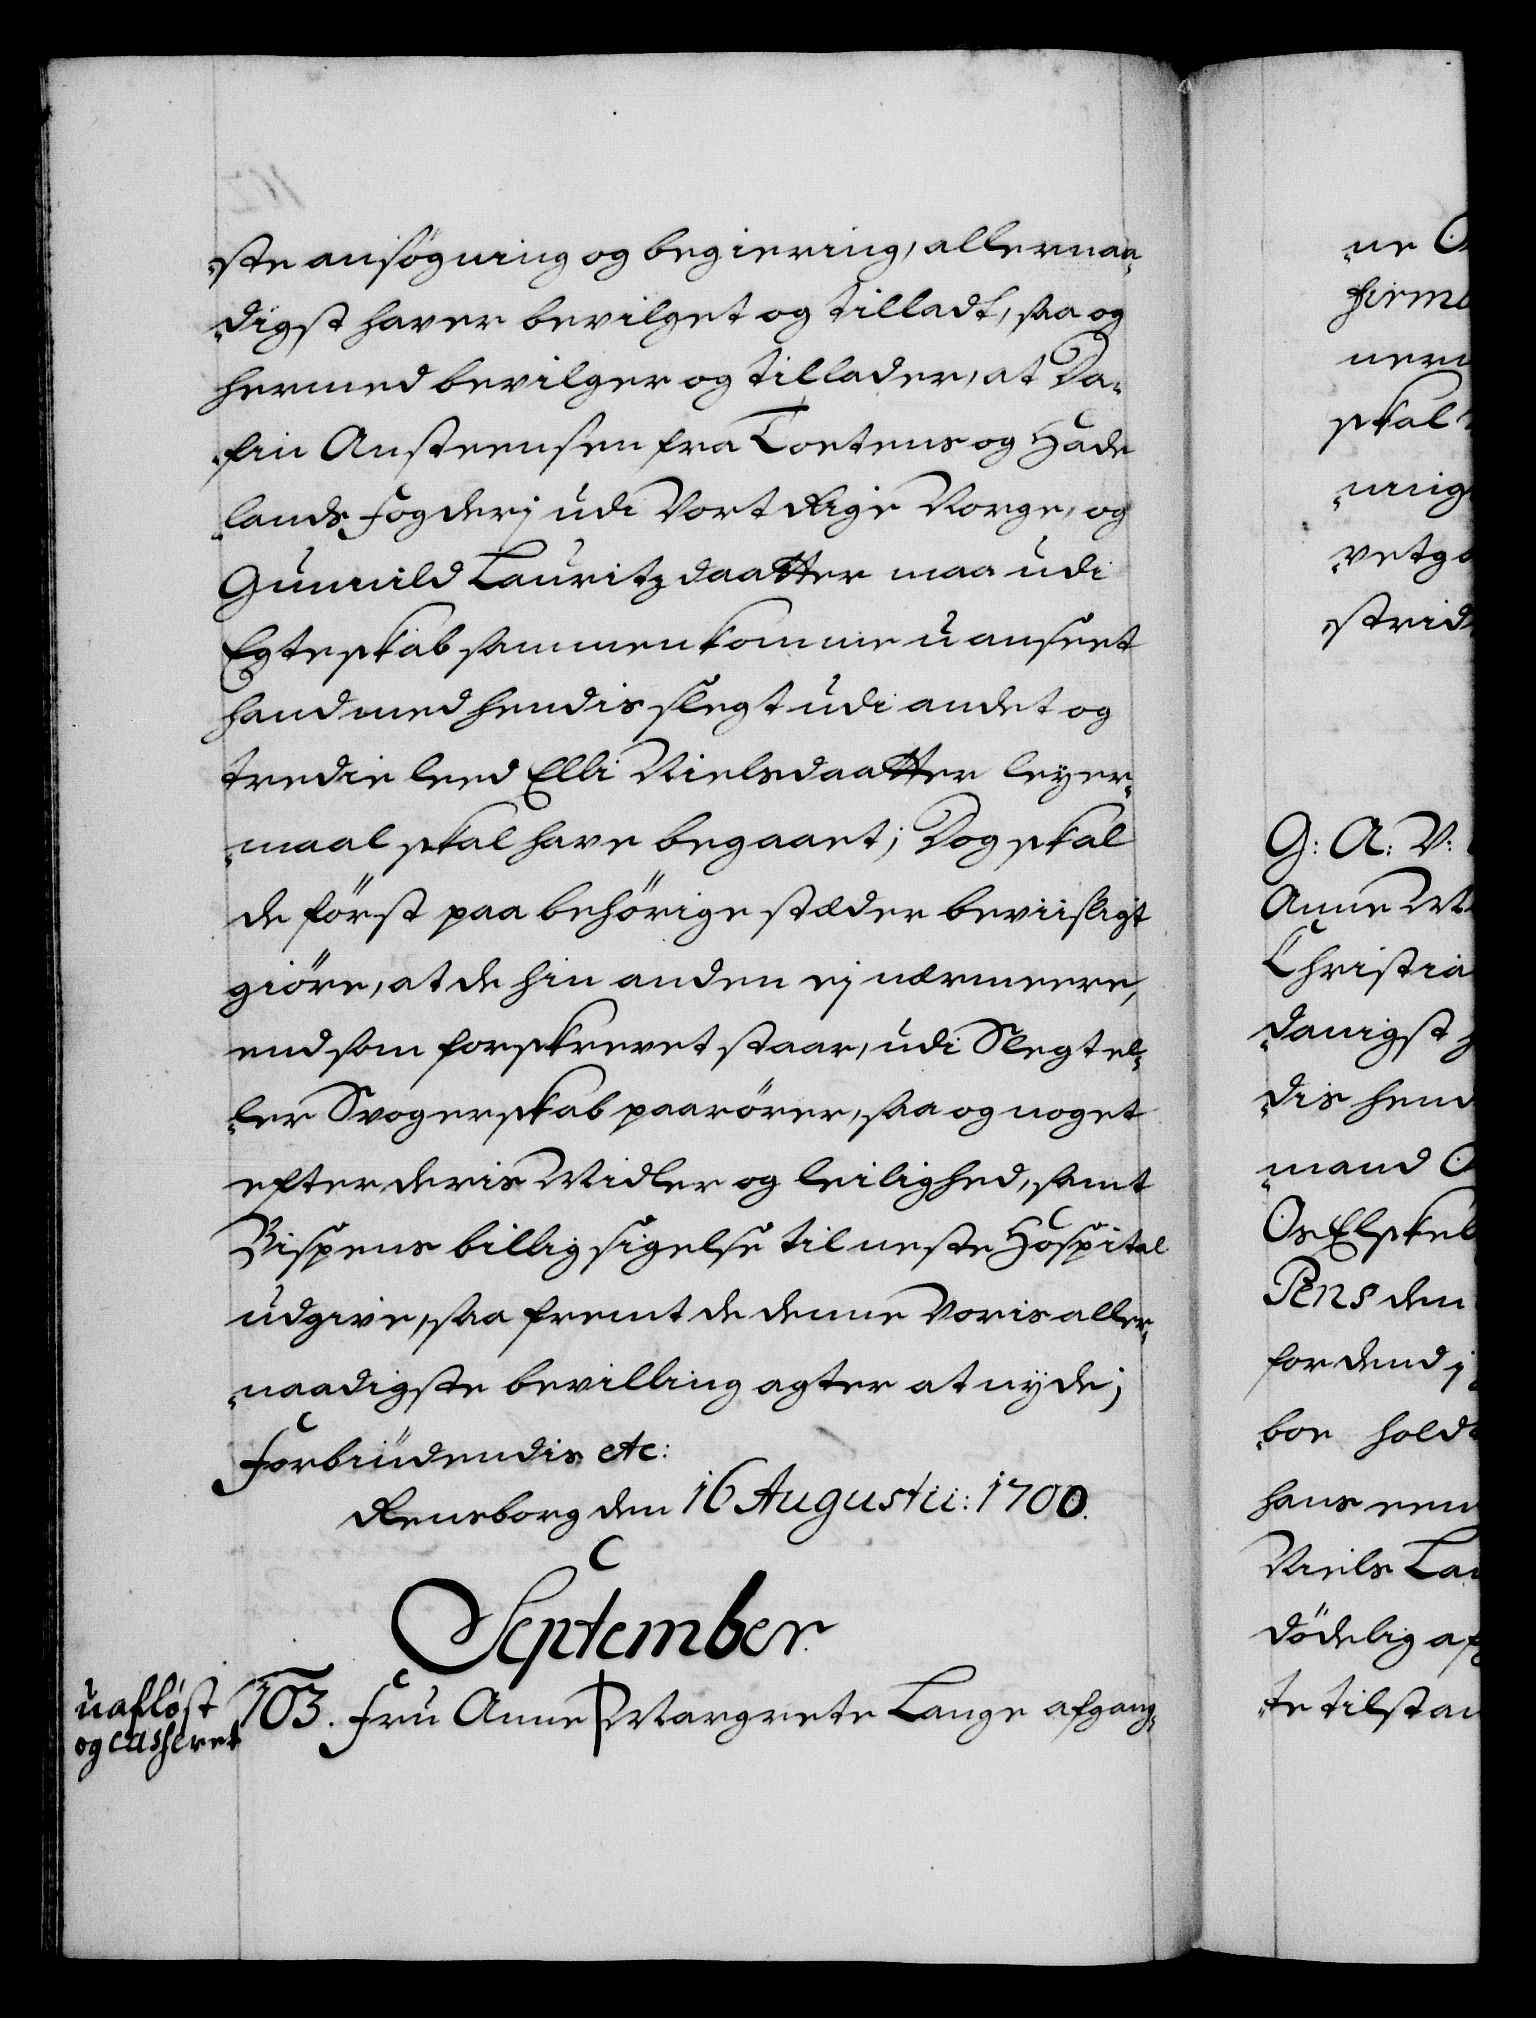 ste ansögning og begiering, allernaa-
digst haver bevilget og tilladt, saa og
hermed bevilger og tillader, at Da-
fin Ansteensen fra Toetens og Hade
lands Fogderj udi Vort Rige Norge, og
Gunnild Lauritzdaatter maa udi
Egteskab sammenkomme uanseet
hand med hendis slegt udi andet og
tredie leed Elli Nielsdaatter leyer-
maal skal have begaaet; Dog skal
de först paa behörige stæder beviisligt
giöre, at de hin anden ej nærmeere,
end som forskrevet staar, udi Slegt el-
ler Svogerskab paarörer, saa og noget
efter deris Midler og leilighed, samt
Bispens billig sigelse til neste Hospital
udgive, saa fremt de denne Voris aller-
naadigste bevilling agter at nyde;
Forbiudendis etc:
Rensborg den 16 Augustii: 1700.
September.
uaflöst
og casseret
103. Fru Anne Margrete Lange afgang-
ne O
firme
ner
skal
ning
vetga
strid
G: A: V:
Anne M
Christia
danigst h
dis hend
mand O
Os Elskel
Jens den
for dend
boe hold
hans een
Niels Lan
dödelig af
te tilstan